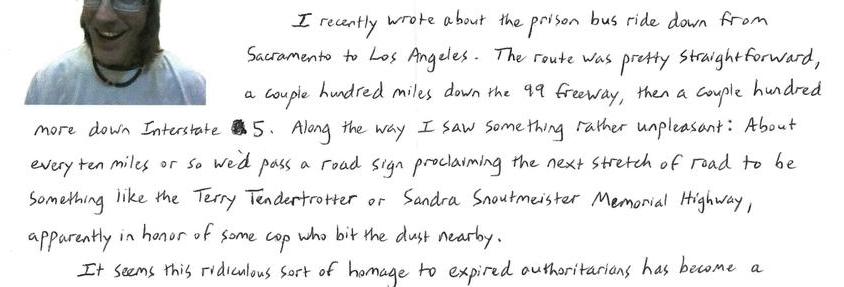 I recently wrote about the prison bus ride down from
Sacramento to Los Angeles. The route was pretty straightforward,
a couple hundred miles down the 99 freeway, then a couple hundred
more down Interstate 5. Along the way I saw something rather unpleasant: About
every ten miles or so we'd pass a road sign proclaiming the next stretch of road to be
something like the Terry Tendertrotter or Sandra Snoutmeister Memorial Highway,
apparently in honor of some cop who bit the dust nearby.
It seems this ridiculous sort of homage to expired authoritarians has become a